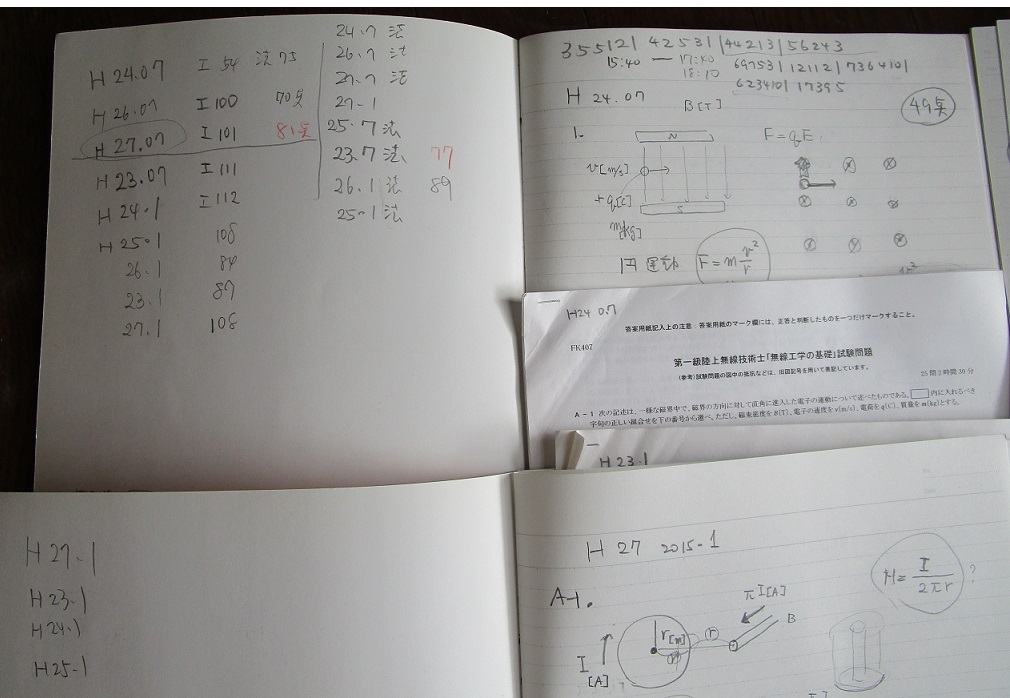 H 24.07 I 54 法 75
H 26.07 I 100 70点
H 27.07 I 101 81点
H 23.07 I 111
H 24.1 I 112
H 25.1 108
26.1 84
23.1 87
27.1 108
24.7 法
26.7 法
27.7 法
27-1
25.7 法
23.7 法 77
26.1 法 89
25.1 法
355121 42531 44213 56243
15:40 — 17:40
18:10
697531 12112 7364101
6234101 17395
H 24.07 B[T] 49点
1. N F=qE
v[m/s]
+q[C]
S
m[kg]
円運動 F=m v²/r
H24 0.7
答案用紙記入上の注意:答案用紙のマーク欄には、正答と判断したものを一つだけマークすること。
FK407
第一級陸上無線技術士「無線工学の基礎」試験問題
(参考)試験問題の図中の抵抗などは、旧図記号を用いて表記しています。
25問 2時間30分
A-1 次の記述は、一様な磁界中で、磁界の方向に対して直角に進入した電子の運動について述べたものである。 内に入れるべき
字句の正しい組合せを下の番号から選べ。ただし、磁束密度をB[T]、電子の速度をv[m/s]、電荷をq[C]、質量をm[kg]とする。
H 23.1
H 27-1
H 23-1
H 24-1
H 25-1
H 27 2015-1
A-1. πI[A] B
H= I/2πr ?
r[m] r
I
[A]